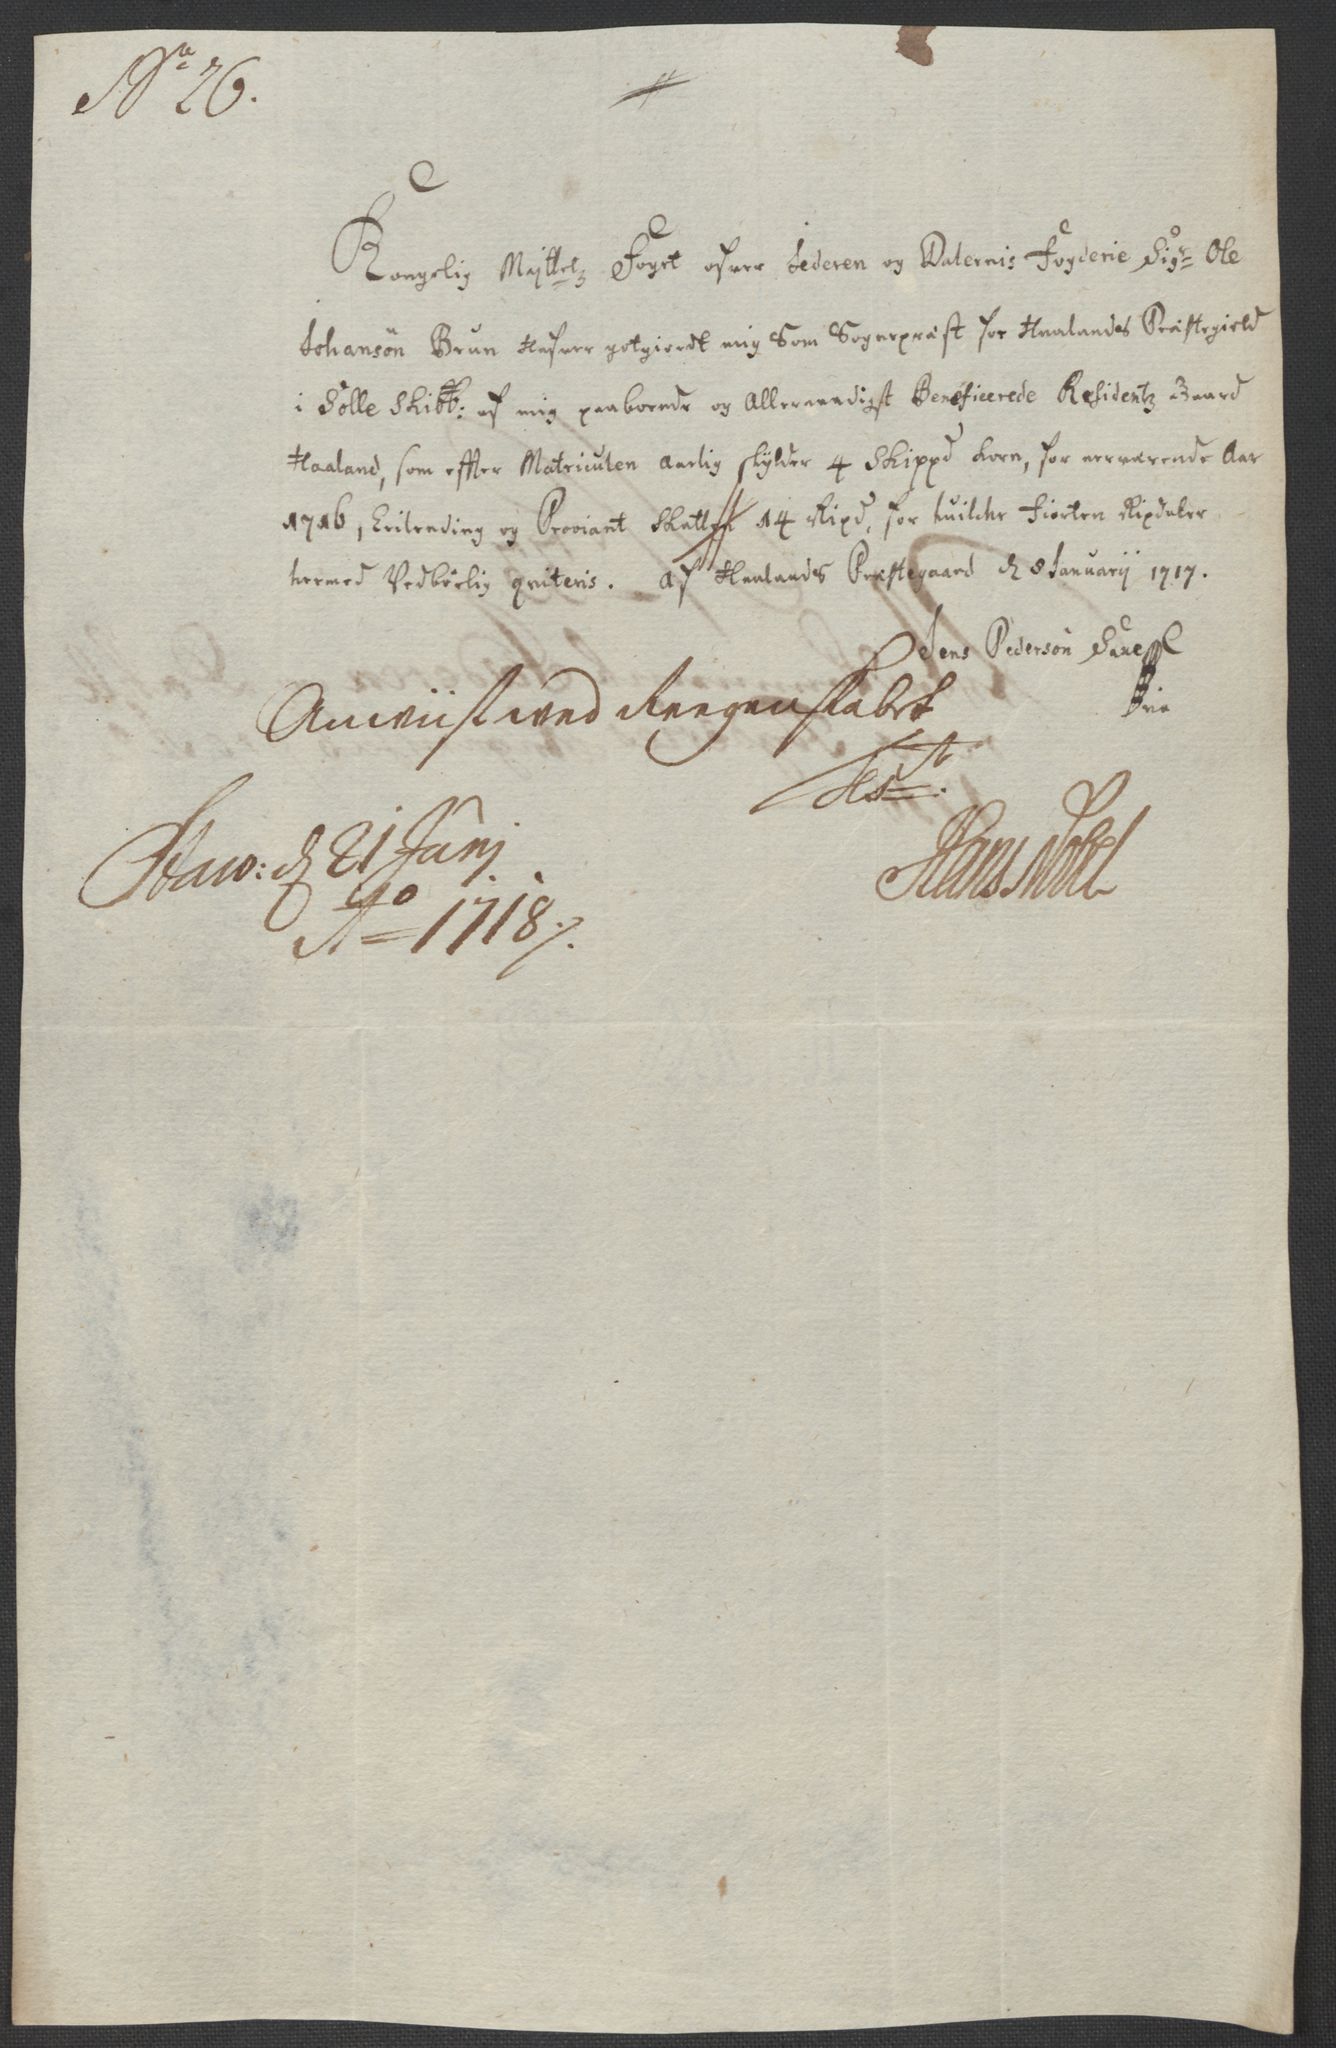 No 26.
Kongelig Maÿttetz Foget ofver Jederen og Dalernis Fogderie Sigr Ole
Johansøn Brun hafver gotgiordt mig Som Sognepræst for Haalands Præstegield
i Solle Skibb: af mig paaboende og Allernaadigst Beneficerede Residentz Gaard
Haaland, som effter Matriculen aarlig skylder 4 Skippd Korn, for nerværende Aar
1716, Leilending og Proviant Skatten 14 Rixd, for huilche Fiorten Rixdaler
hermed Vedbørlig qviteris. Af Haalands Præstegaard d 8 Januarij 1717.
Jens Pedersøn
Anviist ved Reegenskabet
Test:
Staw: d 21 Junj
Ao 1718
Hans Nobel